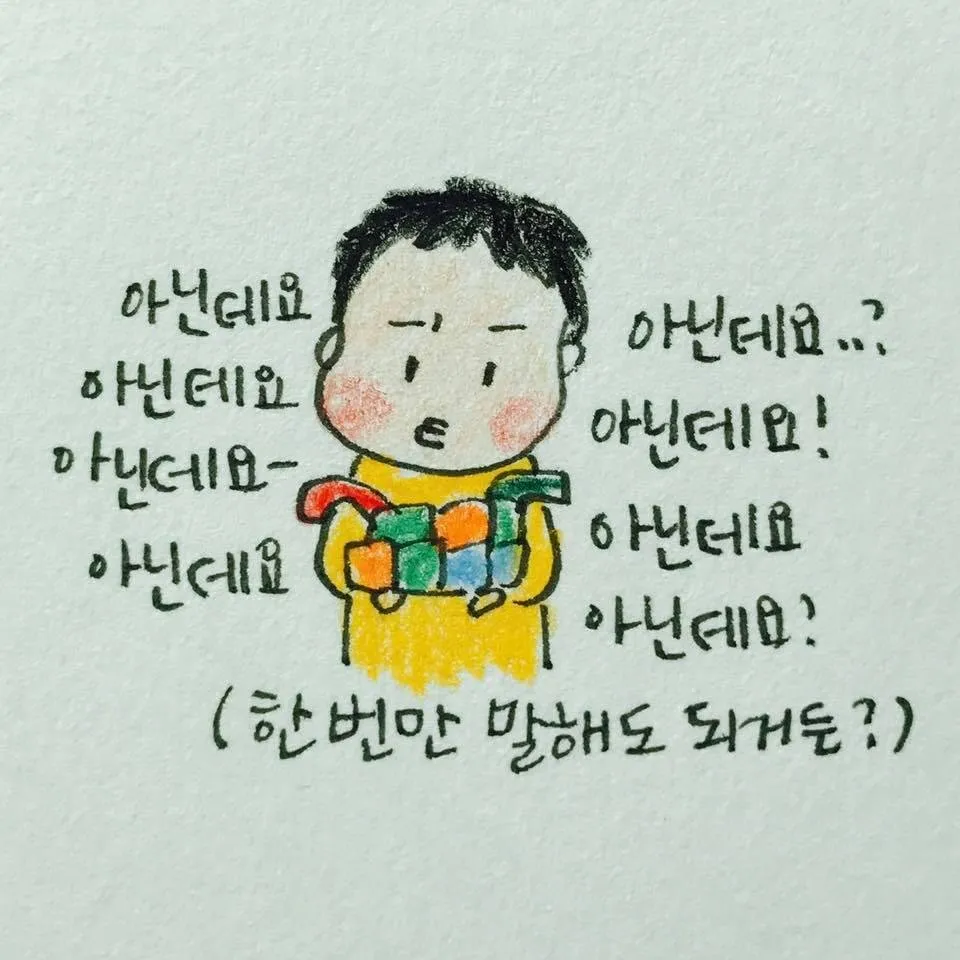 아닌데요
아닌데요
아닌데요-
아닌데요
아닌데요..?
아닌데요!
아닌데요
아닌데요?
(한번만 말해도 되거든?)